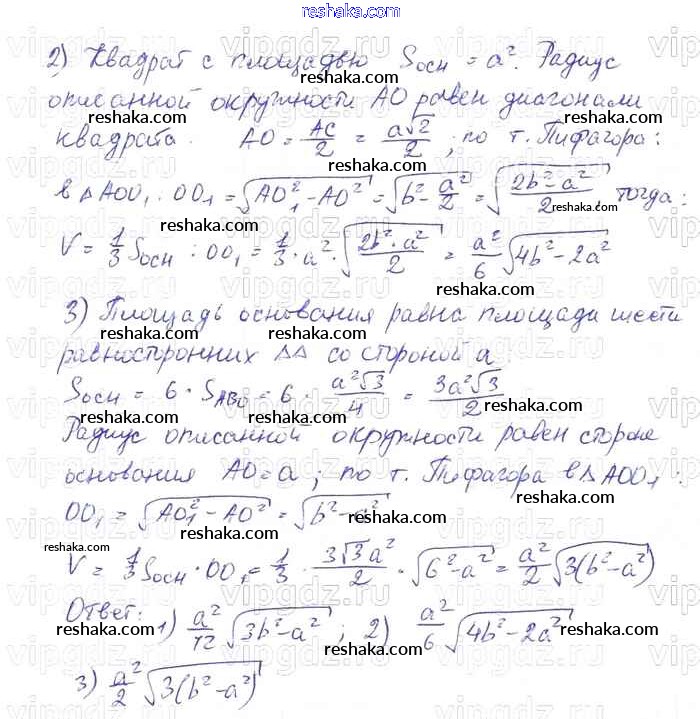 reshaka.com
2) Квадрат с площадью Sосн = a². Радиус
описанной окружности AO равен диагонали
квадрата. AO = AC/2 = a√2/2 ; по т. Пифагора:
в △AOO₁ : OO₁ = √(AO₁² - AO²) = √(b² - a²/2) = √((2b² - a²)/2) тогда:
V = 1/3 Sосн · OO₁ = 1/3 · a² · √((2b² · a²)/2) = a²/6 √(4b² - 2a²)
3) Площадь основания равна площади шести
равносторонних △△ со стороной a:
Sосн = 6 · S_ABO = 6 · a²√3/4 = 3a²√3/2
Радиус описанной окружности равен стороне
основания AO = a ; по т. Пифагора в △AOO₁ :
OO₁ = √(AO₁² - AO²) = √(b² - a²)
V = 1/3 Sосн · OO₁ = 1/3 · 3√3a²/2 · √(b² - a²) = a²/2 √(3(b² - a²))
Ответ: 1) a²/12 √(3b² - a²) ; 2) a²/6 √(4b² - 2a²)
3) a²/2 √(3(b² - a²))